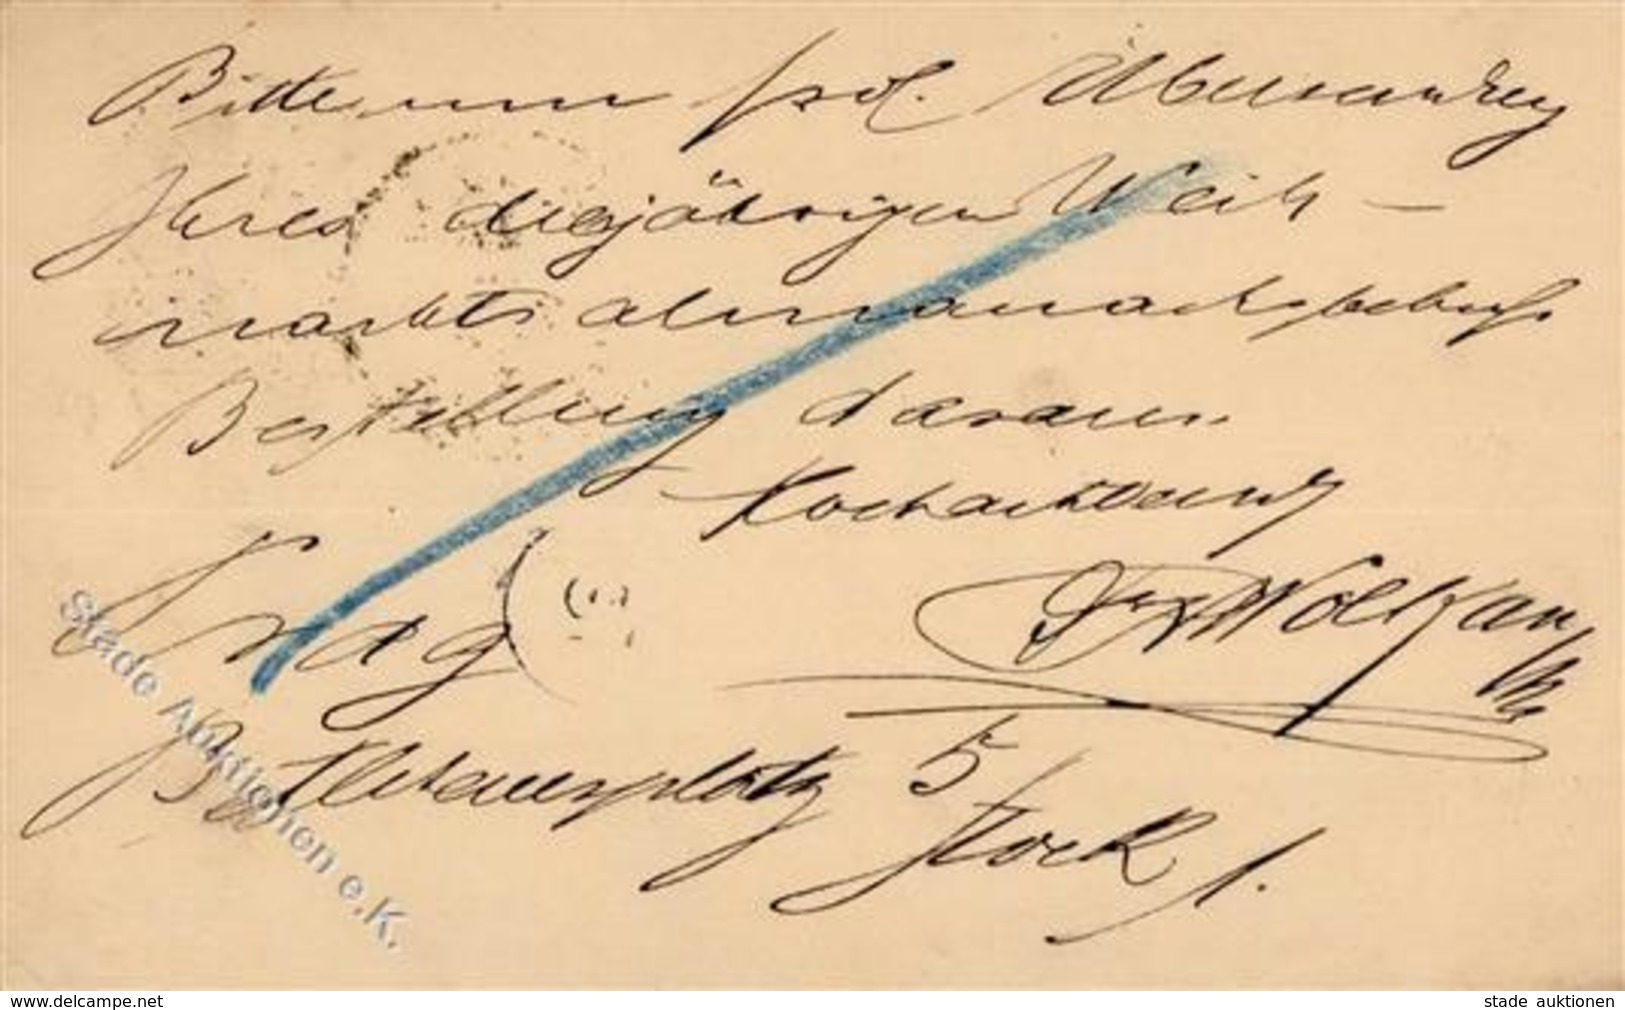 Bitte um frdl. Übersendung
Ihres diesjährigen Weih-
markts almanachs behufs
Bestellung daraus.
Hochachtend
Dr Woltzan
Prag
5
Stock 1.
Stade Auktionen e.K.
www.delcampe.net
stade auktionen